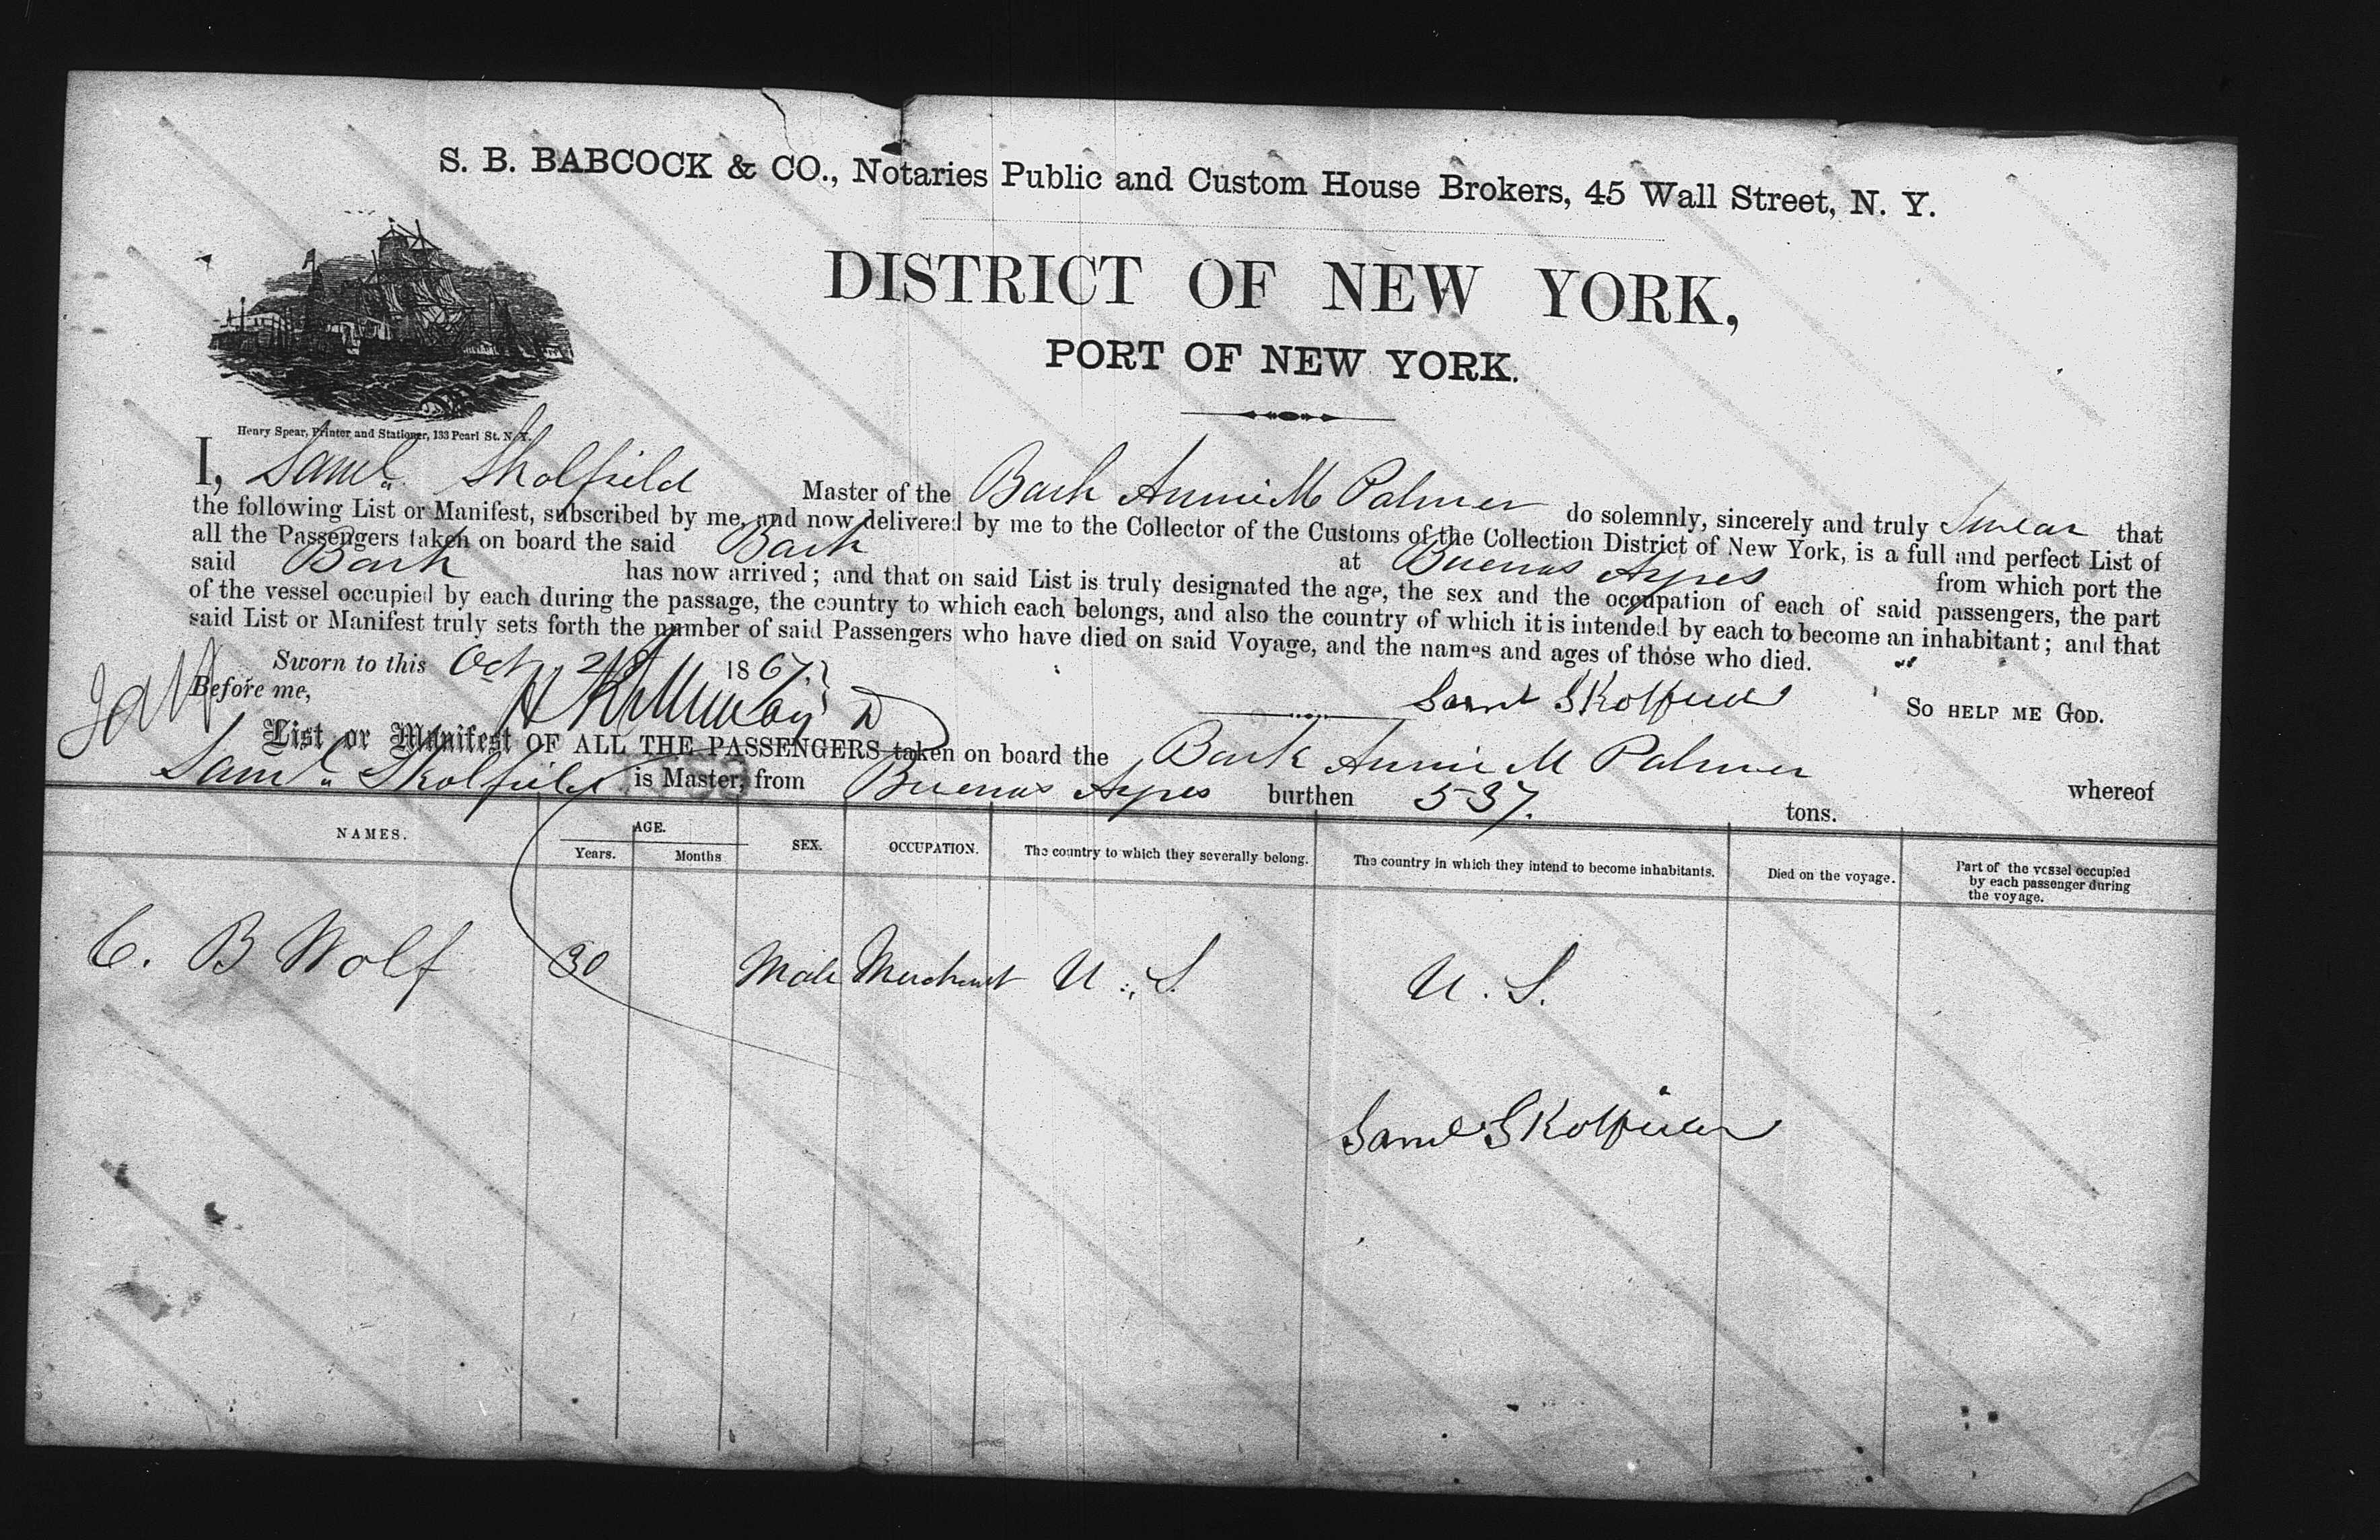 S. B. BABCOCK & CO., Notaries Public and Custom House Brokers, 45 Wall Street, N. Y.
DISTRICT OF NEW YORK,
PORT OF NEW YORK.
Henry Spear, Printer and Stationer, 133 Pearl St. N. Y.
I, Saml. Skolfield Master of the Bark Annie M Palmer do solemnly, sincerely and truly Swear that
the following List or Manifest, subscribed by me, and now delivered by me to the Collector of the Customs of the Collection District of New York, is a full and perfect List of
all the Passengers taken on board the said Bark at Buenos Ayres from which port the
said Bark has now arrived; and that on said List is truly designated the age, the sex and the occupation of each of said passengers, the part
of the vessel occupied by each during the passage, the country to which each belongs, and also the country of which it is intended by each to become an inhabitant; and that
said List or Manifest truly sets forth the number of said Passengers who have died on said Voyage, and the names and ages of those who died.
Sworn to this Oct 1867.
Before me,
Saml Skolfield SO HELP ME GOD.
List or Manifest OF ALL THE PASSENGERS taken on board the Bark Annie M Palmer whereof
Saml. Skolfield is Master, from Buenos Ayres burthen 537. tons.
NAMES. AGE. Years. Months SEX. OCCUPATION. The country to which they severally belong. The country in which they intend to become inhabitants. Died on the voyage. Part of the vessel occupied by each passenger during the voyage.
C. B Wolf 30 Male Merchant U. S. U. S.
Saml Skolfield